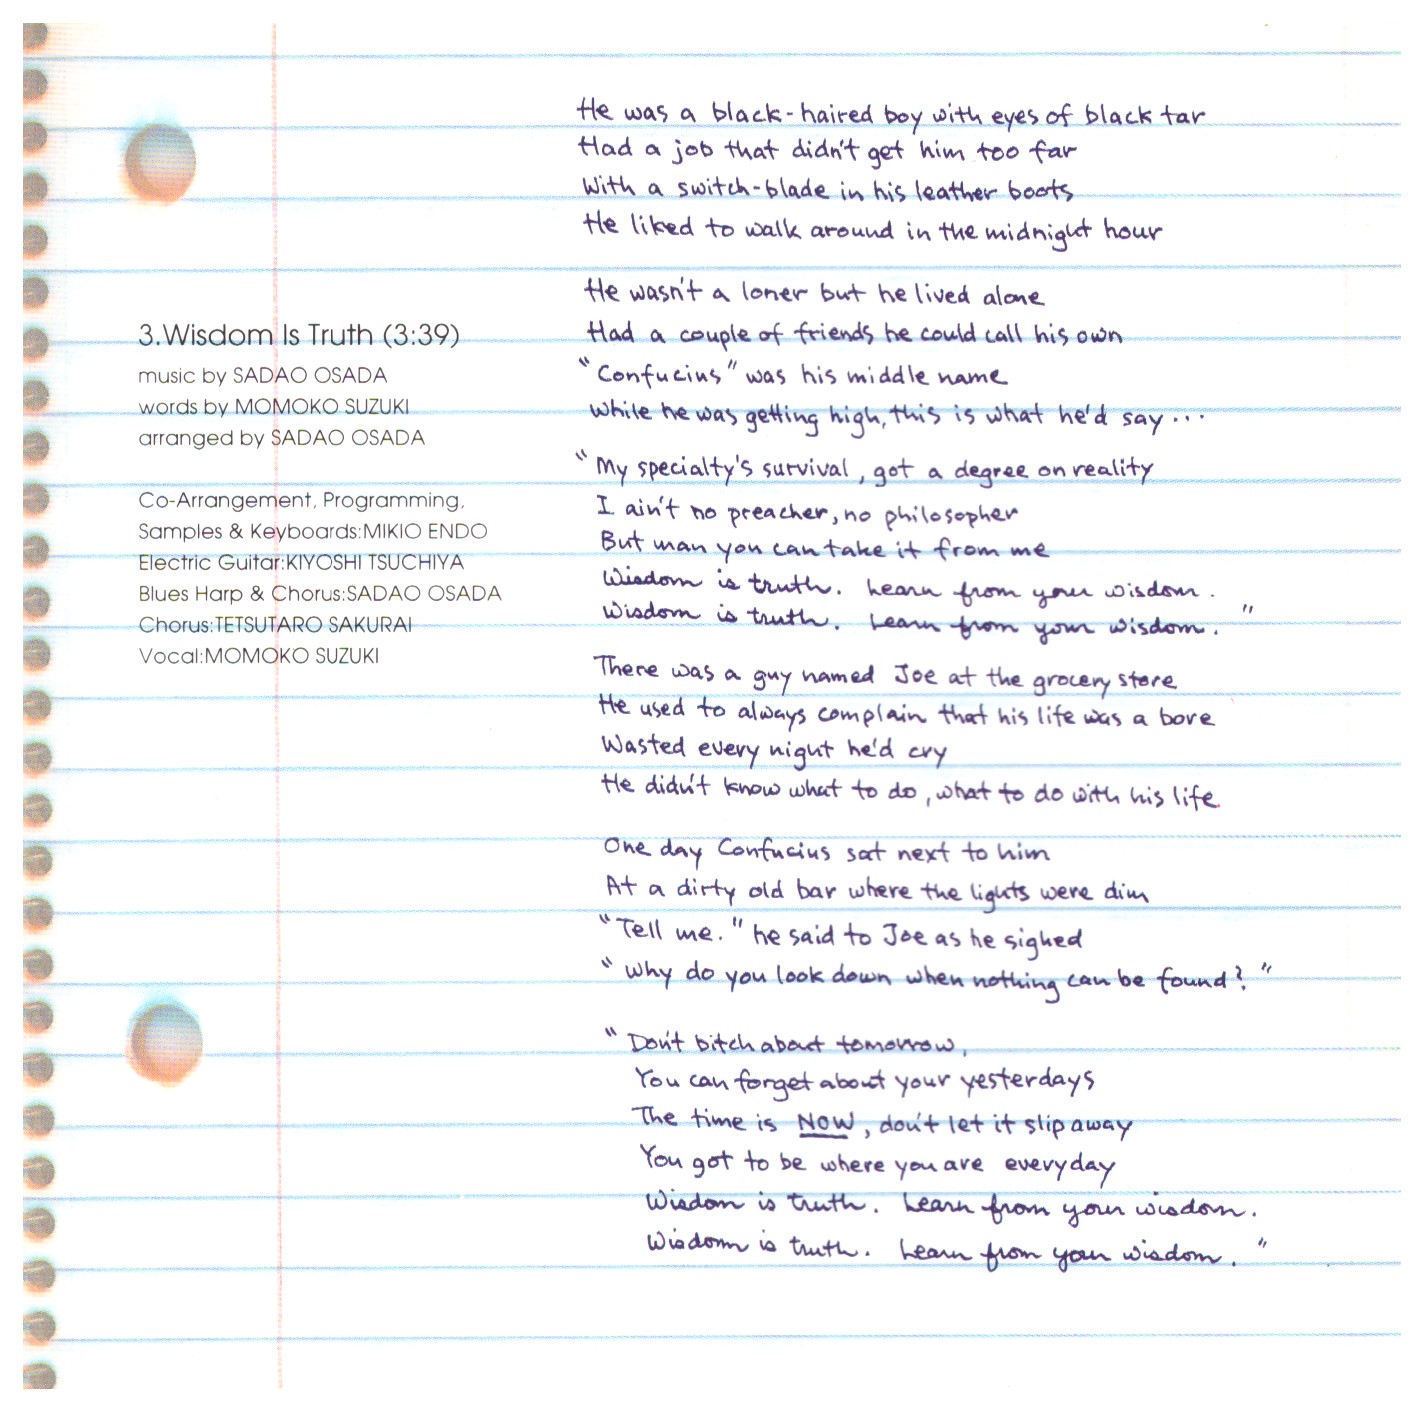 3.Wisdom Is Truth (3:39)
music by SADAO OSADA
words by MOMOKO SUZUKI
arranged by SADAO OSADA
Co-Arrangement, Programming,
Samples & Keyboards:MIKIO ENDO
Electric Guitar:KIYOSHI TSUCHIYA
Blues Harp & Chorus:SADAO OSADA
Chorus:TETSUTARO SAKURAI
Vocal:MOMOKO SUZUKI
He was a black-haired boy with eyes of black tar
Had a job that didn't get him too far
With a switch-blade in his leather boots
He liked to walk around in the midnight hour
He wasn't a loner but he lived alone
Had a couple of friends he could call his own
"Confucius" was his middle name
While he was getting high, this is what he'd say...
"My specialty's survival, got a degree on reality
I ain't no preacher, no philosopher
But man you can take it from me
Wisdom is truth. Learn from your wisdom.
Wisdom is truth. Learn from your wisdom."
There was a guy named Joe at the grocery store
He used to always complain that his life was a bore
Wasted every night he'd cry
He didn't know what to do, what to do with his life.
One day Confucius sat next to him
At a dirty old bar where the lights were dim
"Tell me." he said to Joe as he sighed
"Why do you look down when nothing can be found?"
"Don't bitch about tomorrow,
You can forget about your yesterdays
The time is NOW, don't let it slip away
You got to be where you are everyday
Wisdom is truth. Learn from your wisdom.
Wisdom is truth. Learn from your wisdom."